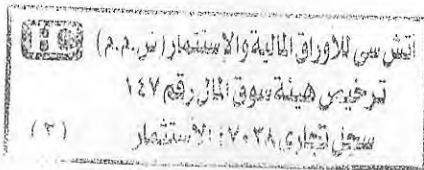 اتش سى للأوراق المالية والاستثمار (ش.م.م)
HC
ترخيص هيئة سوق المال رقم ١٤٧
سجل تجارى ٧٠٣٨ : الاستثمار (٢)